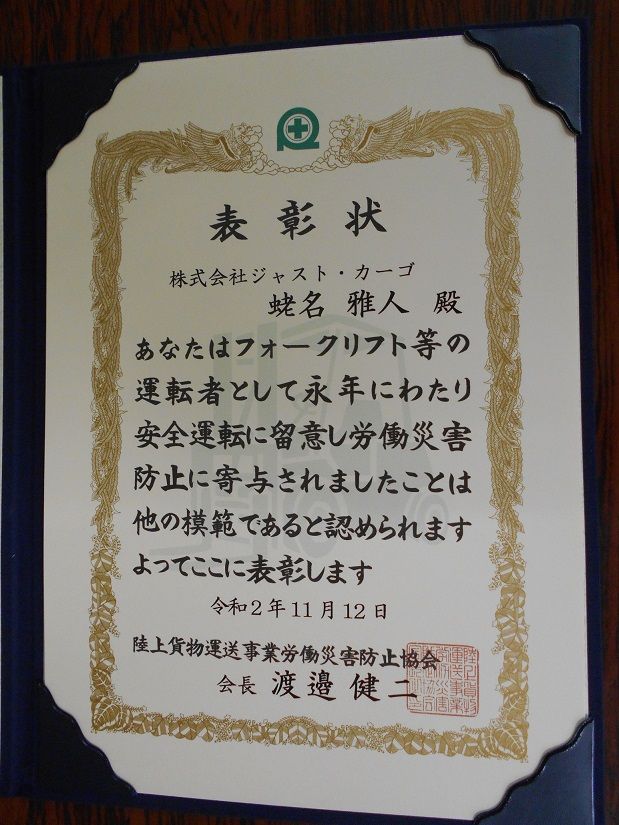 表彰状
株式会社ジャスト・カーゴ
蛯名 雅人 殿
あなたはフォークリフト等の
運転者として永年にわたり
安全運転に留意し労働災害
防止に寄与されましたことは
他の模範であると認められます
よってここに表彰します
令和2年11月12日
陸上貨物運送事業労働災害防止協会
会長 渡邉 健二